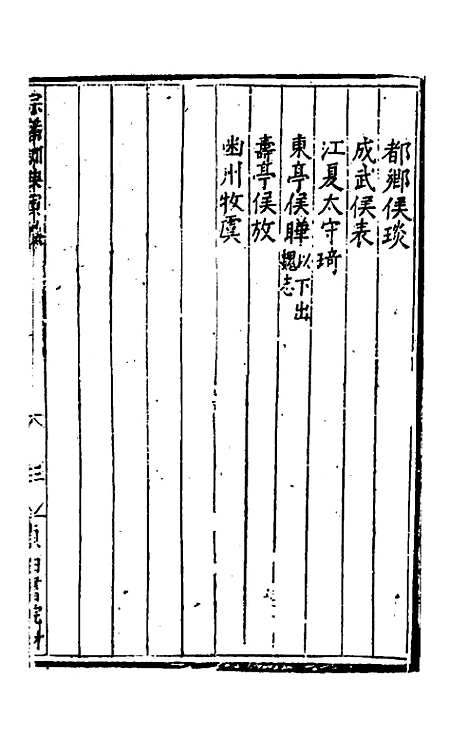 都鄉侯琰
成武侯表
江夏太守琦
東亭侯曄以下出魏志
壽亭侯放
幽州牧虞
宗藩訓典